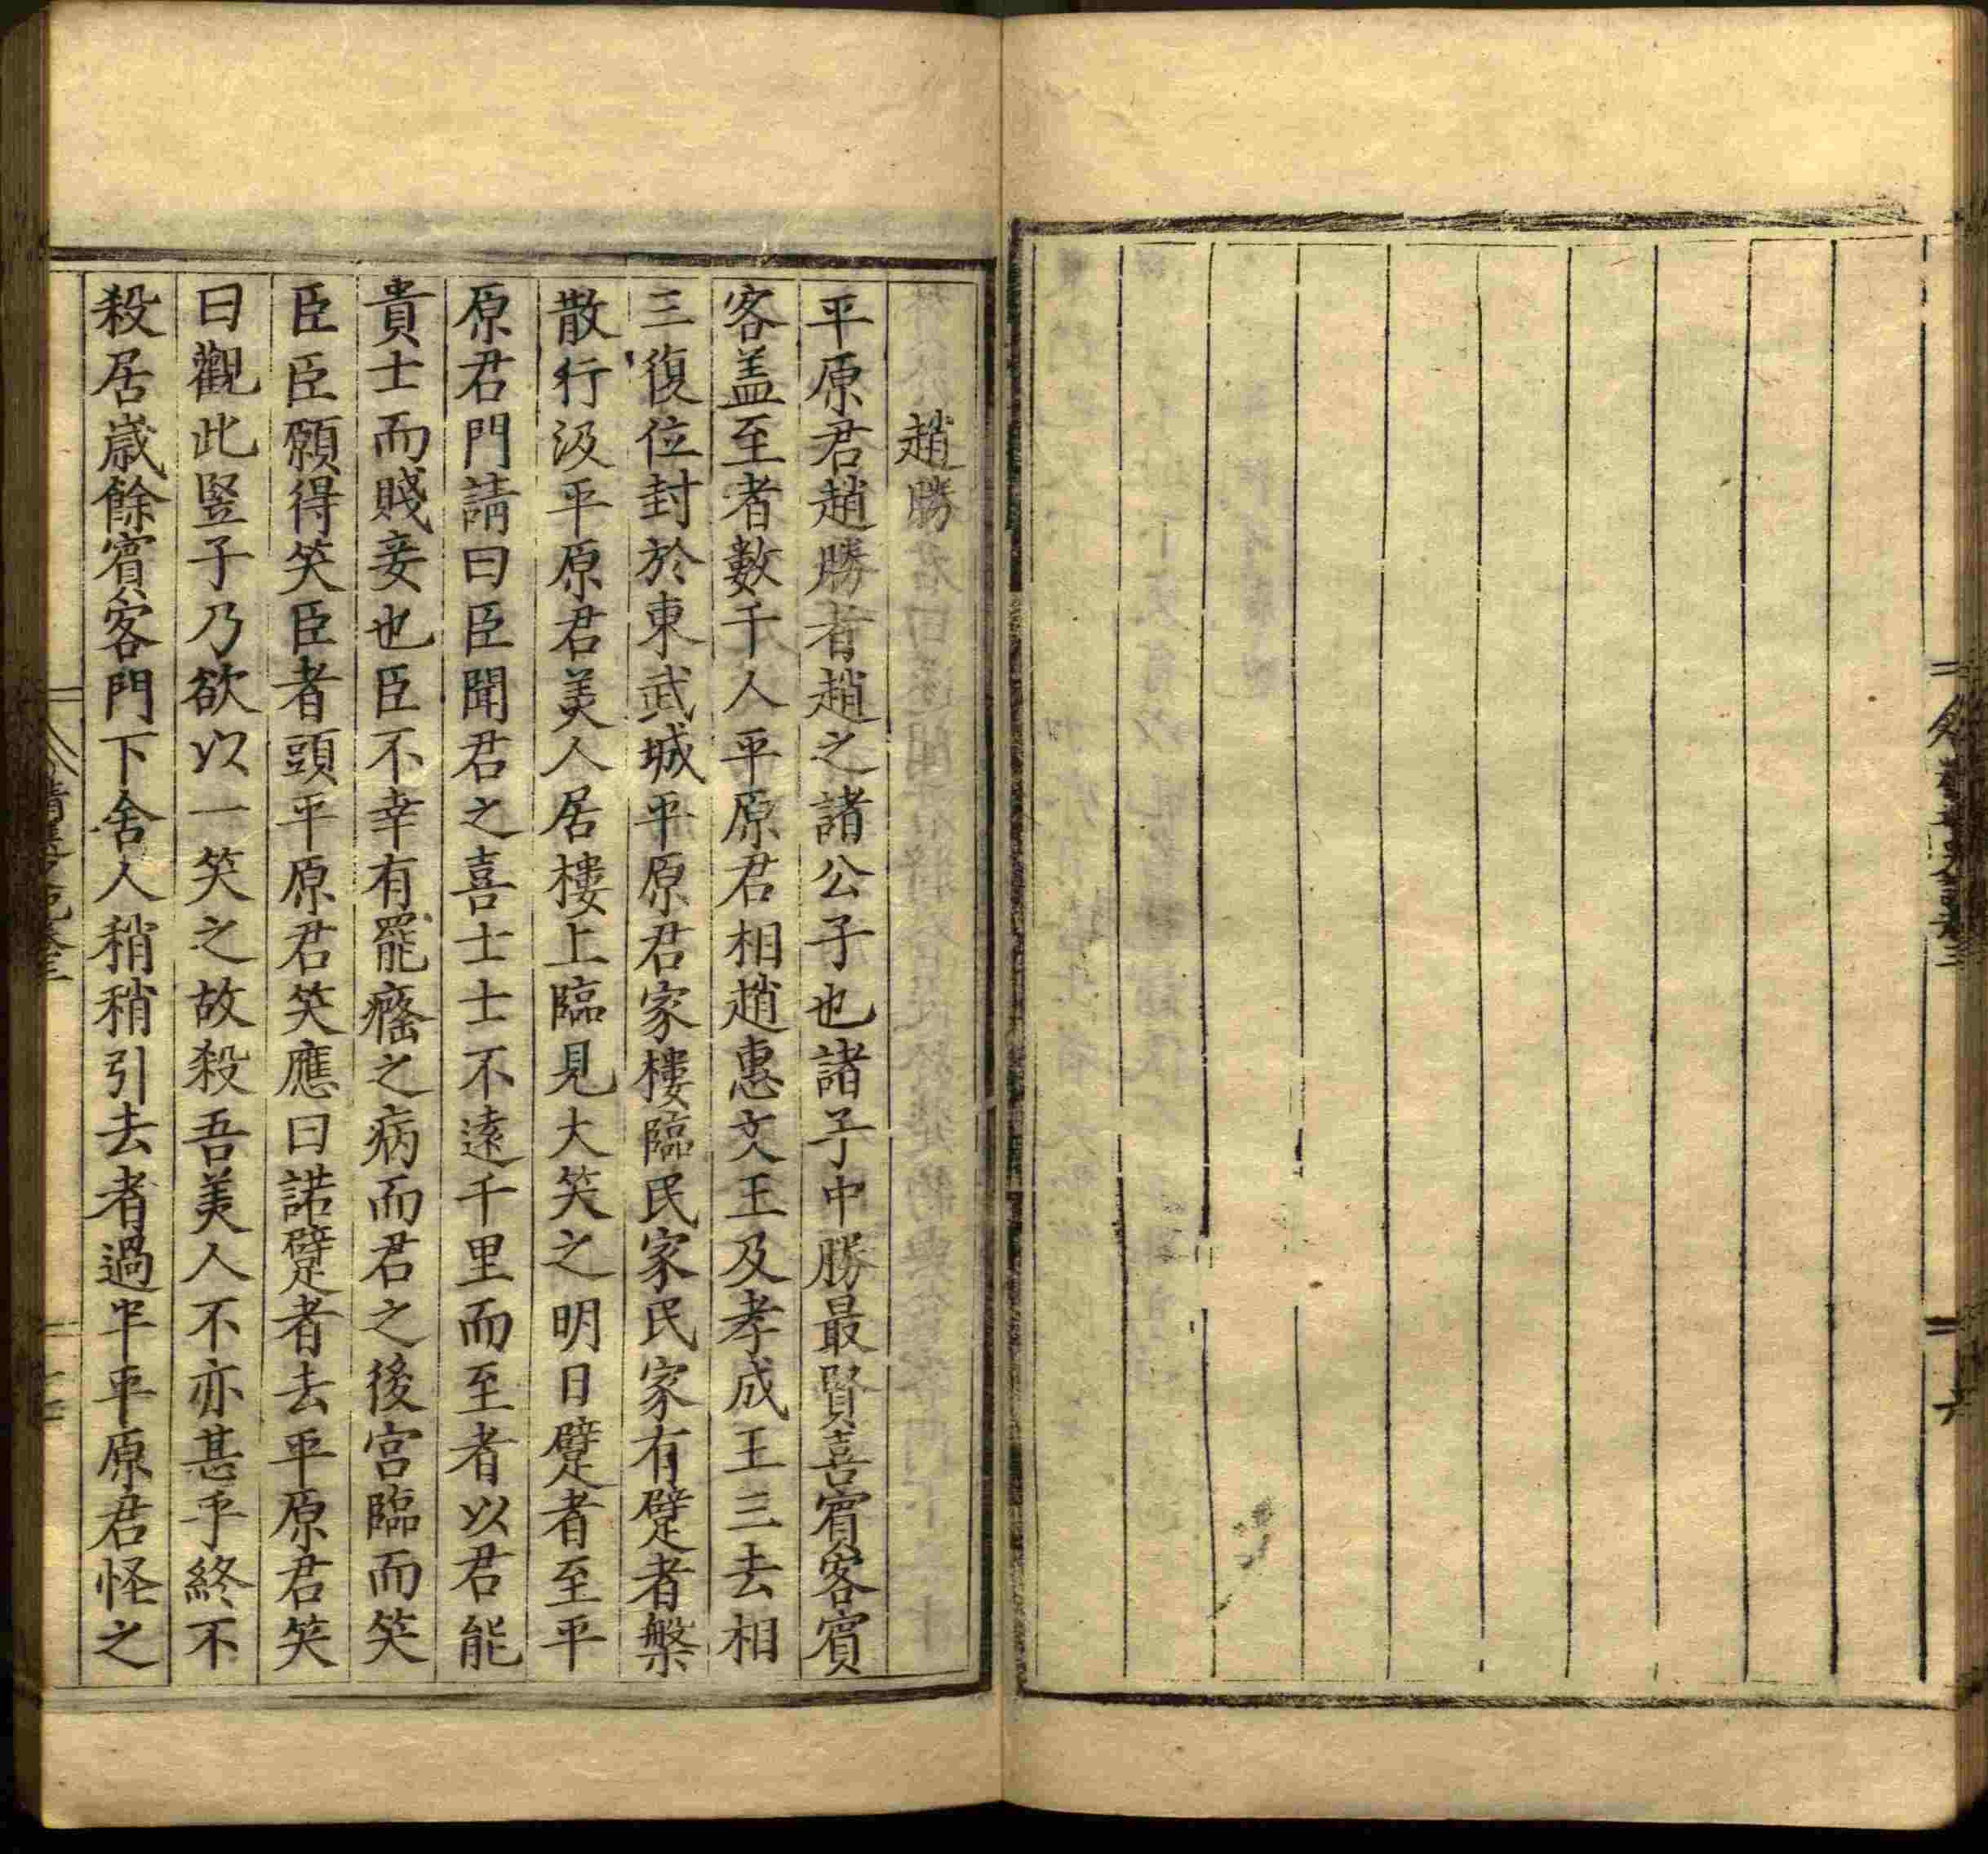 趙勝
平原君趙勝者趙之諸公子也諸子中勝最賢喜賓客賓
客盖至者數千人平原君相趙惠文王及孝成王三去相
三復位封於東武城平原君家樓臨民家民家有躄者槃
散行汲平原君美人居樓上臨見大笑之明日躄者至平
原君門請曰臣聞君之喜士士不遠千里而至者以君能
貴士而賤妾也臣不幸有罷癃之病而君之後宮臨而笑
臣臣願得笑臣者頭平原君笑應曰諾躄者去平原君笑
曰觀此竪子乃欲以一笑之故殺吾美人不亦甚乎終不
殺居歲餘賓客門下舍人稍稍引去者過半平原君怪之